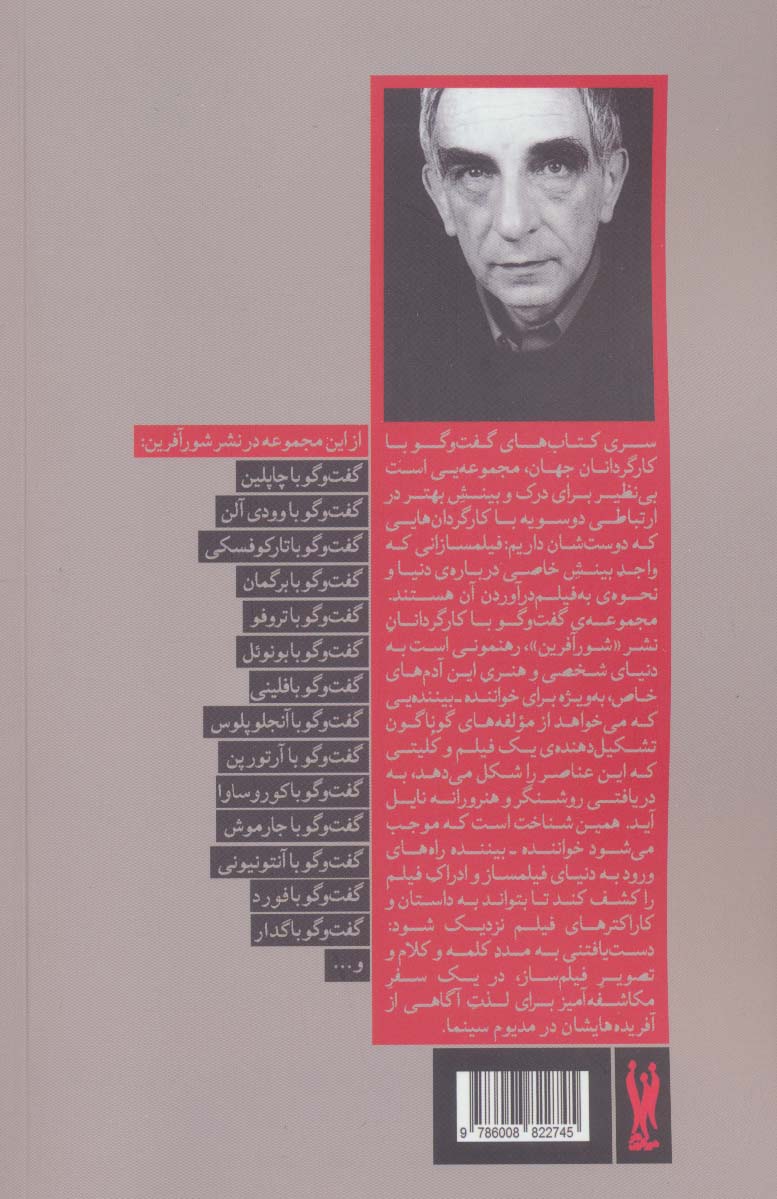 سری کتاب‌های گفت‌وگو با
کارگردانان جهان، مجموعه‌یی است
بی‌نظیر برای درک و بینش بهتر در
ارتباطی دوسویه با کارگردان‌هایی
که دوست‌شان داریم: فیلمسازانی که
واجد بینشِ خاصی درباره‌ی دنیا و
نحوه‌ی به‌فیلم‌درآوردن آن هستند.
مجموعه‌ی گفت‌وگو با کارگردانانِ
نشر «شورآفرین»، رهنمونی است به
دنیای شخصی و هنریِ این آدم‌های
خاص، به‌ویژه برای خواننده ـ بیننده‌یی
که می‌خواهد از مؤلفه‌های گوناگون
تشکیل‌دهنده‌ی یک فیلم و کُلیتی
که این عناصر را شکل می‌دهد، به
دریافتی روشنگر و هنرورانه نایل
آید. همین شناخت است که موجب
می‌شود خواننده ـ بیننده راه‌های
ورود به دنیای فیلمساز و ادراکِ فیلم
را کشف کند تا بتواند به داستان و
کاراکترهای فیلم نزدیک شود:
دست‌یافتنی به مددِ کلمه و کلام و
تصویرِ فیلم‌ساز، در یک سفرِ
مکاشفه‌آمیز برای لذتِ آگاهی از
آفریده‌هایشان در مدیوم سینما.
از این مجموعه در نشر شورآفرین:
گفت‌وگو با چاپلین
گفت‌وگو با وودی آلن
گفت‌وگو با تارکوفسکی
گفت‌وگو با برگمان
گفت‌وگو با تروفو
گفت‌وگو با بونوئل
گفت‌وگو با فلینی
گفت‌وگو با آنجلوپلوس
گفت‌وگو با آرتور پن
گفت‌وگو با کوروساوا
گفت‌وگو با جارموش
گفت‌وگو با آنتونیونی
گفت‌وگو با فورد
گفت‌وگو با گدار
و...
9 786008 822745